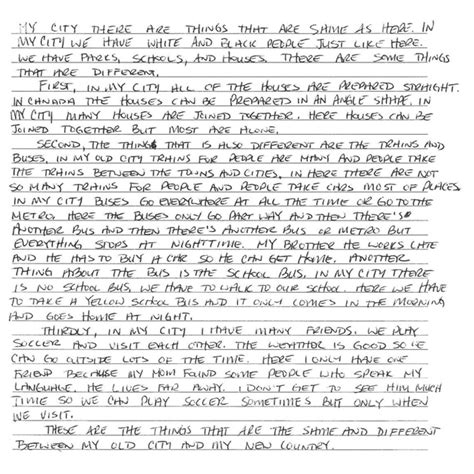 MY CITY THERE ARE THINGS THAT ARE SAIME AS HERE. IN
MY CITY WE HAVE WHITE AND BLACK PEOPLE JUST LIKE HERE.
WE HAVE PARKS, SCHOOLS, AND HOUSES. THERE ARE SOME THINGS
THAT ARE DIFFERENT.
FIRST, IN MY CITY ALL OF THE HOUSES ARE PREPARED STRAIGHT.
IN CANADA THE HOUSES CAN BE PREPARETS IN AN ANGLE SHAPE. IN
MY CITY MANY HOUSES ARE JOINED TOGETHER. HERE HOUSES CAN BE
JOINED TOGETHER BUT MOST ARE ALONE.
SECOND, THE THINGS THAT IS ALSO DIFFERENT ARE THE TRAINS AND
BUSES. IN MY OLD CITY TRAINS FOR PEOPLE ARE MANY AND PEOPLE TAKE
THE TRAINS BETWEEN THE TOWNS AND CITIES, IN HERE THERE ARE NOT
SO MANY TRAINS FOR PEOPLE AND PEOPLE TAKE CARS MOST OF PLACES.
IN MY CITY BUSES GO EVERYWHERE AT ALL THE TIME OR GO TO THE
METRO. HERE THE BUSES ONLY GO PART WAY AND THEN THERE'S
ANOTHER BUS AND THEN THERE'S ANOTHER BUS OR METRO BUT
EVERYTHING STOPS AT NIGHTTIME. MY BROTHER HE WORKS LATE
AND HE HAS TO BUY A CAR SO HE CAN GET HOME. ANOTHER
THING ABOUT THE BUS IS THE SCHOOL BUS. IN MY CITY THERE
IS NO SCHOOL BUS, WE HAVE TO WALK TO OUR SCHOOL. HERE WE HAVE
TO TAKE A YELLOW SCHOOL BUS AND IT ONLY COMES IN THE MORNING
AND GOES HOME AT NIGHT.
THIRDLY, IN MY CITY I HAVE MANY FRIENDS. WE PLAY
SOCCER AND VISIT EACH OTHER. THE WEATHER IS GOOD SO WE
CAN GO OUTSIDE LOTS OF THE TIME. HERE I ONLY HAVE ONE
FRIEND BECAUSE MY MOM FOUND SOME PEOPLE WHO SPEAK MY
LANGUAGE. HE LIVES FAR AWAY. I DON'T GET TO SEE HIM MUCH
TIME SO WE CAN PLAY SOCCER SOMETIMES BUT ONLY WHEN
WE VISIT.
THESE ARE THE THINGS THAT ARE THE SAME AND DIFFERENT
BETWEEN MY OLD CITY AND MY NEW COUNTRY.